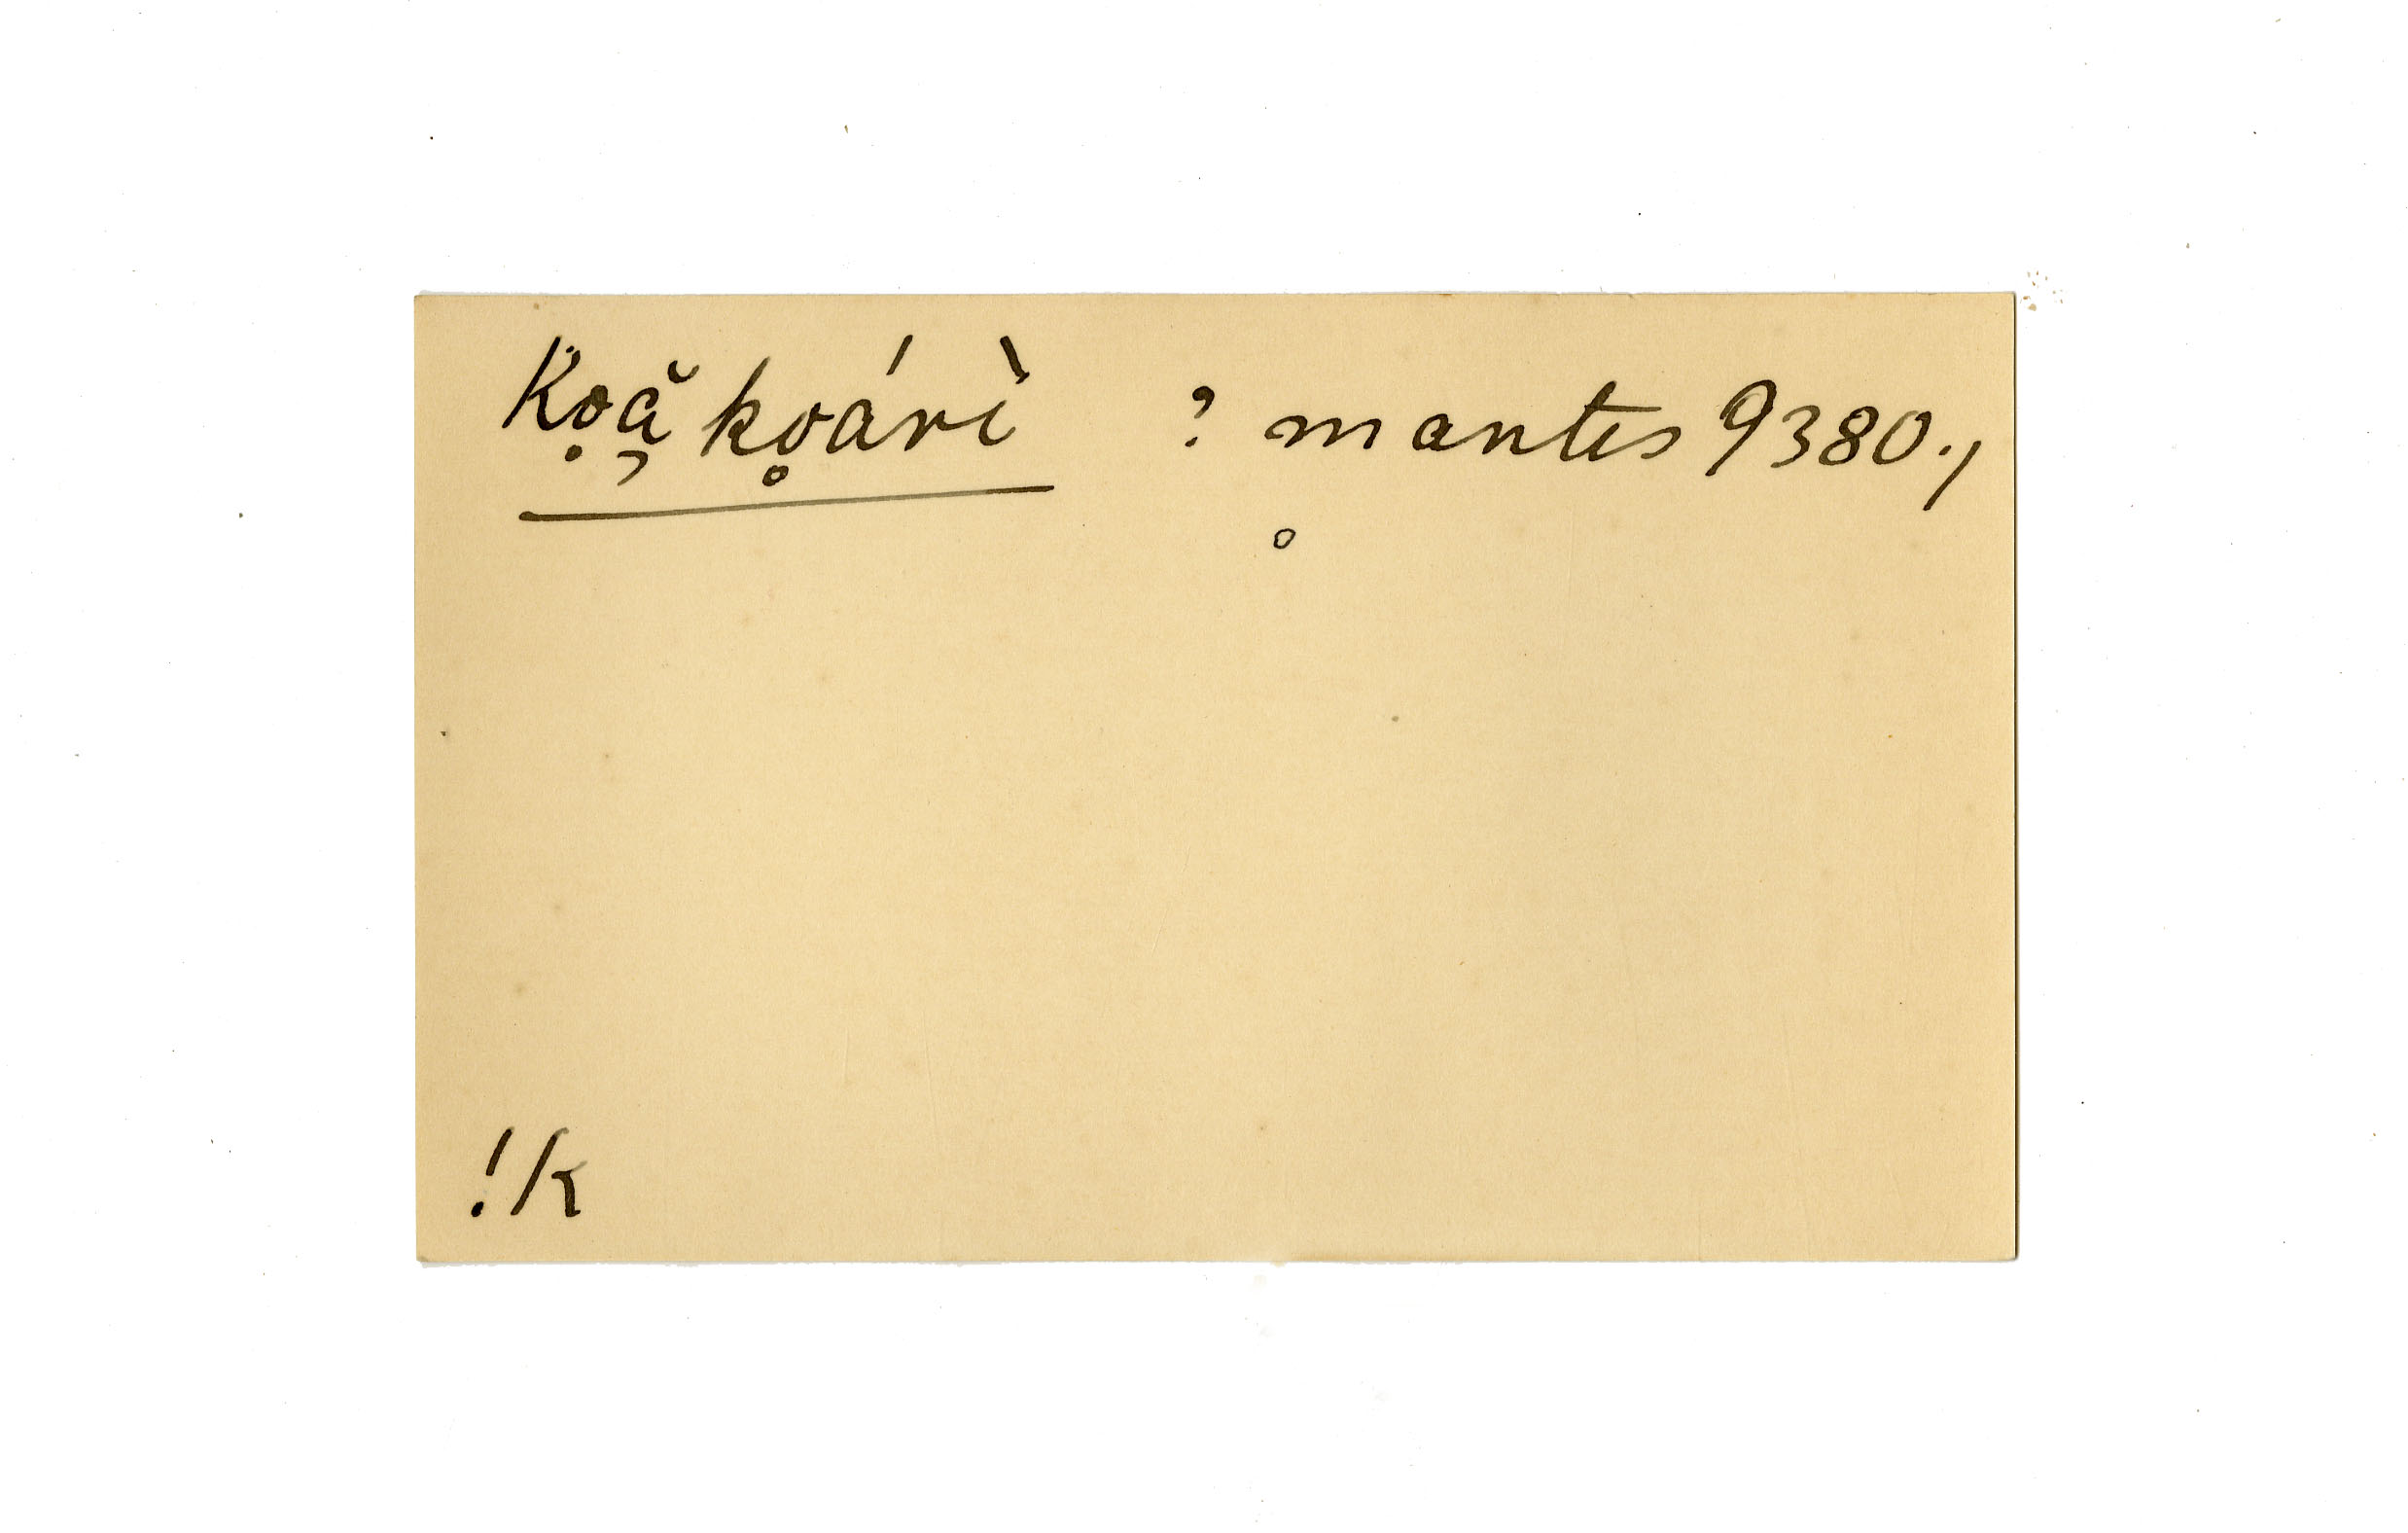 Ko̥ã̆ ko̥árì ? mantis 9380.,
!k